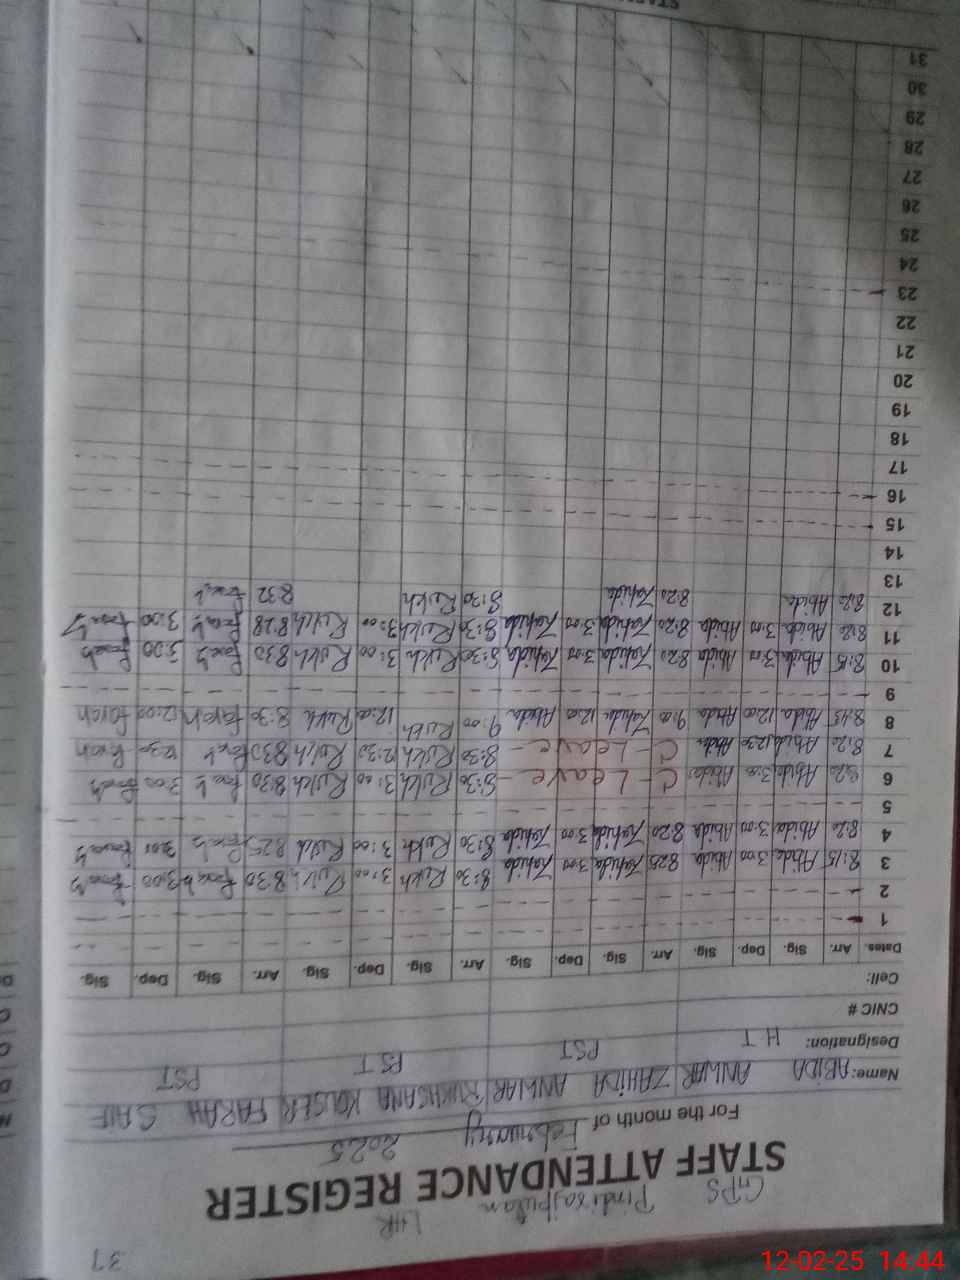 37
GPS Pindi rajputan LHR
STAFF ATTENDANCE REGISTER
For the month of February 2025
Name: ABIDA ANWAR ZAHIDA ANWAR RUKHSANA KOUSER FARAH SAIF
Designation: H T PST PST PST
CNIC #
Cell:
Dates. Arr. Sig. Dep. Sig. Arr. Sig. Dep. Sig. Arr. Sig. Dep. Sig. Arr. Sig. Dep. Sig.
1
2
3 8:15 Abida 3:00 Abida 8:25 Zahida 3:00 Zahida 8:30 Rukh 3:00 Rukh 8:30 Farah 3:00 Farah
4 8:20 Abida 3:00 Abida 8:20 Zahida 3:00 Zahida 8:30 Rukh 3:00 Rukh 8:25 Farah 3:00 Farah
5
6 8:20 Abida 3:00 Abida C - Leave - 8:30 Rukh 3:00 Rukh 8:30 Farah 3:00 Farah
7 8:20 Abida 12:30 Abida C - Leave - 8:30 Rukh 12:30 Rukh 8:30 Farah 12:30 Farah
8 8:45 Abida 12:00 Abida 9:00 Zahida 12:00 Abida 9:00 Rukh 12:00 Rukh 8:30 Farah 12:00 Farah
9
10 8:15 Abida 3:00 Abida 8:20 Zahida 3:00 Zahida 8:30 Rukh 3:00 Rukh 8:30 Farah 3:00 Farah
11 8:20 Abida 3:00 Abida 8:20 Zahida 3:00 Zahida 8:30 Rukh 3:00 Rukh 8:28 Farah 3:00 Farah
12 8:20 Abida 8:20 Zahida 8:30 Rukh 8:32 Farah
13
14
15
16
17
18
19
20
21
22
23
24
25
26
27
28
29
30
31
12-02-25 14:44